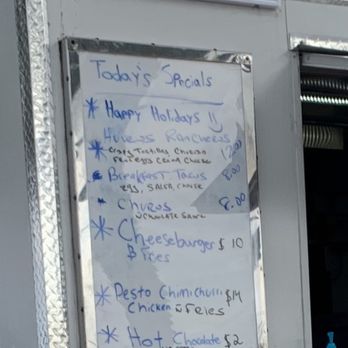 Today's Specials
* Happy Holidays !!
Huevos Rancheros
* Crispy Tortillas, Chicken 12.00
Cream Cheese
Breakfast Tacos 8.00
egg, Salsa, Cheese
Churos 8.00
chocolate Sauce
* Cheeseburger $ 10
& Fries
* Pesto Chimichurri $14
Chicken & FRIES
* Hot Chocolate $2